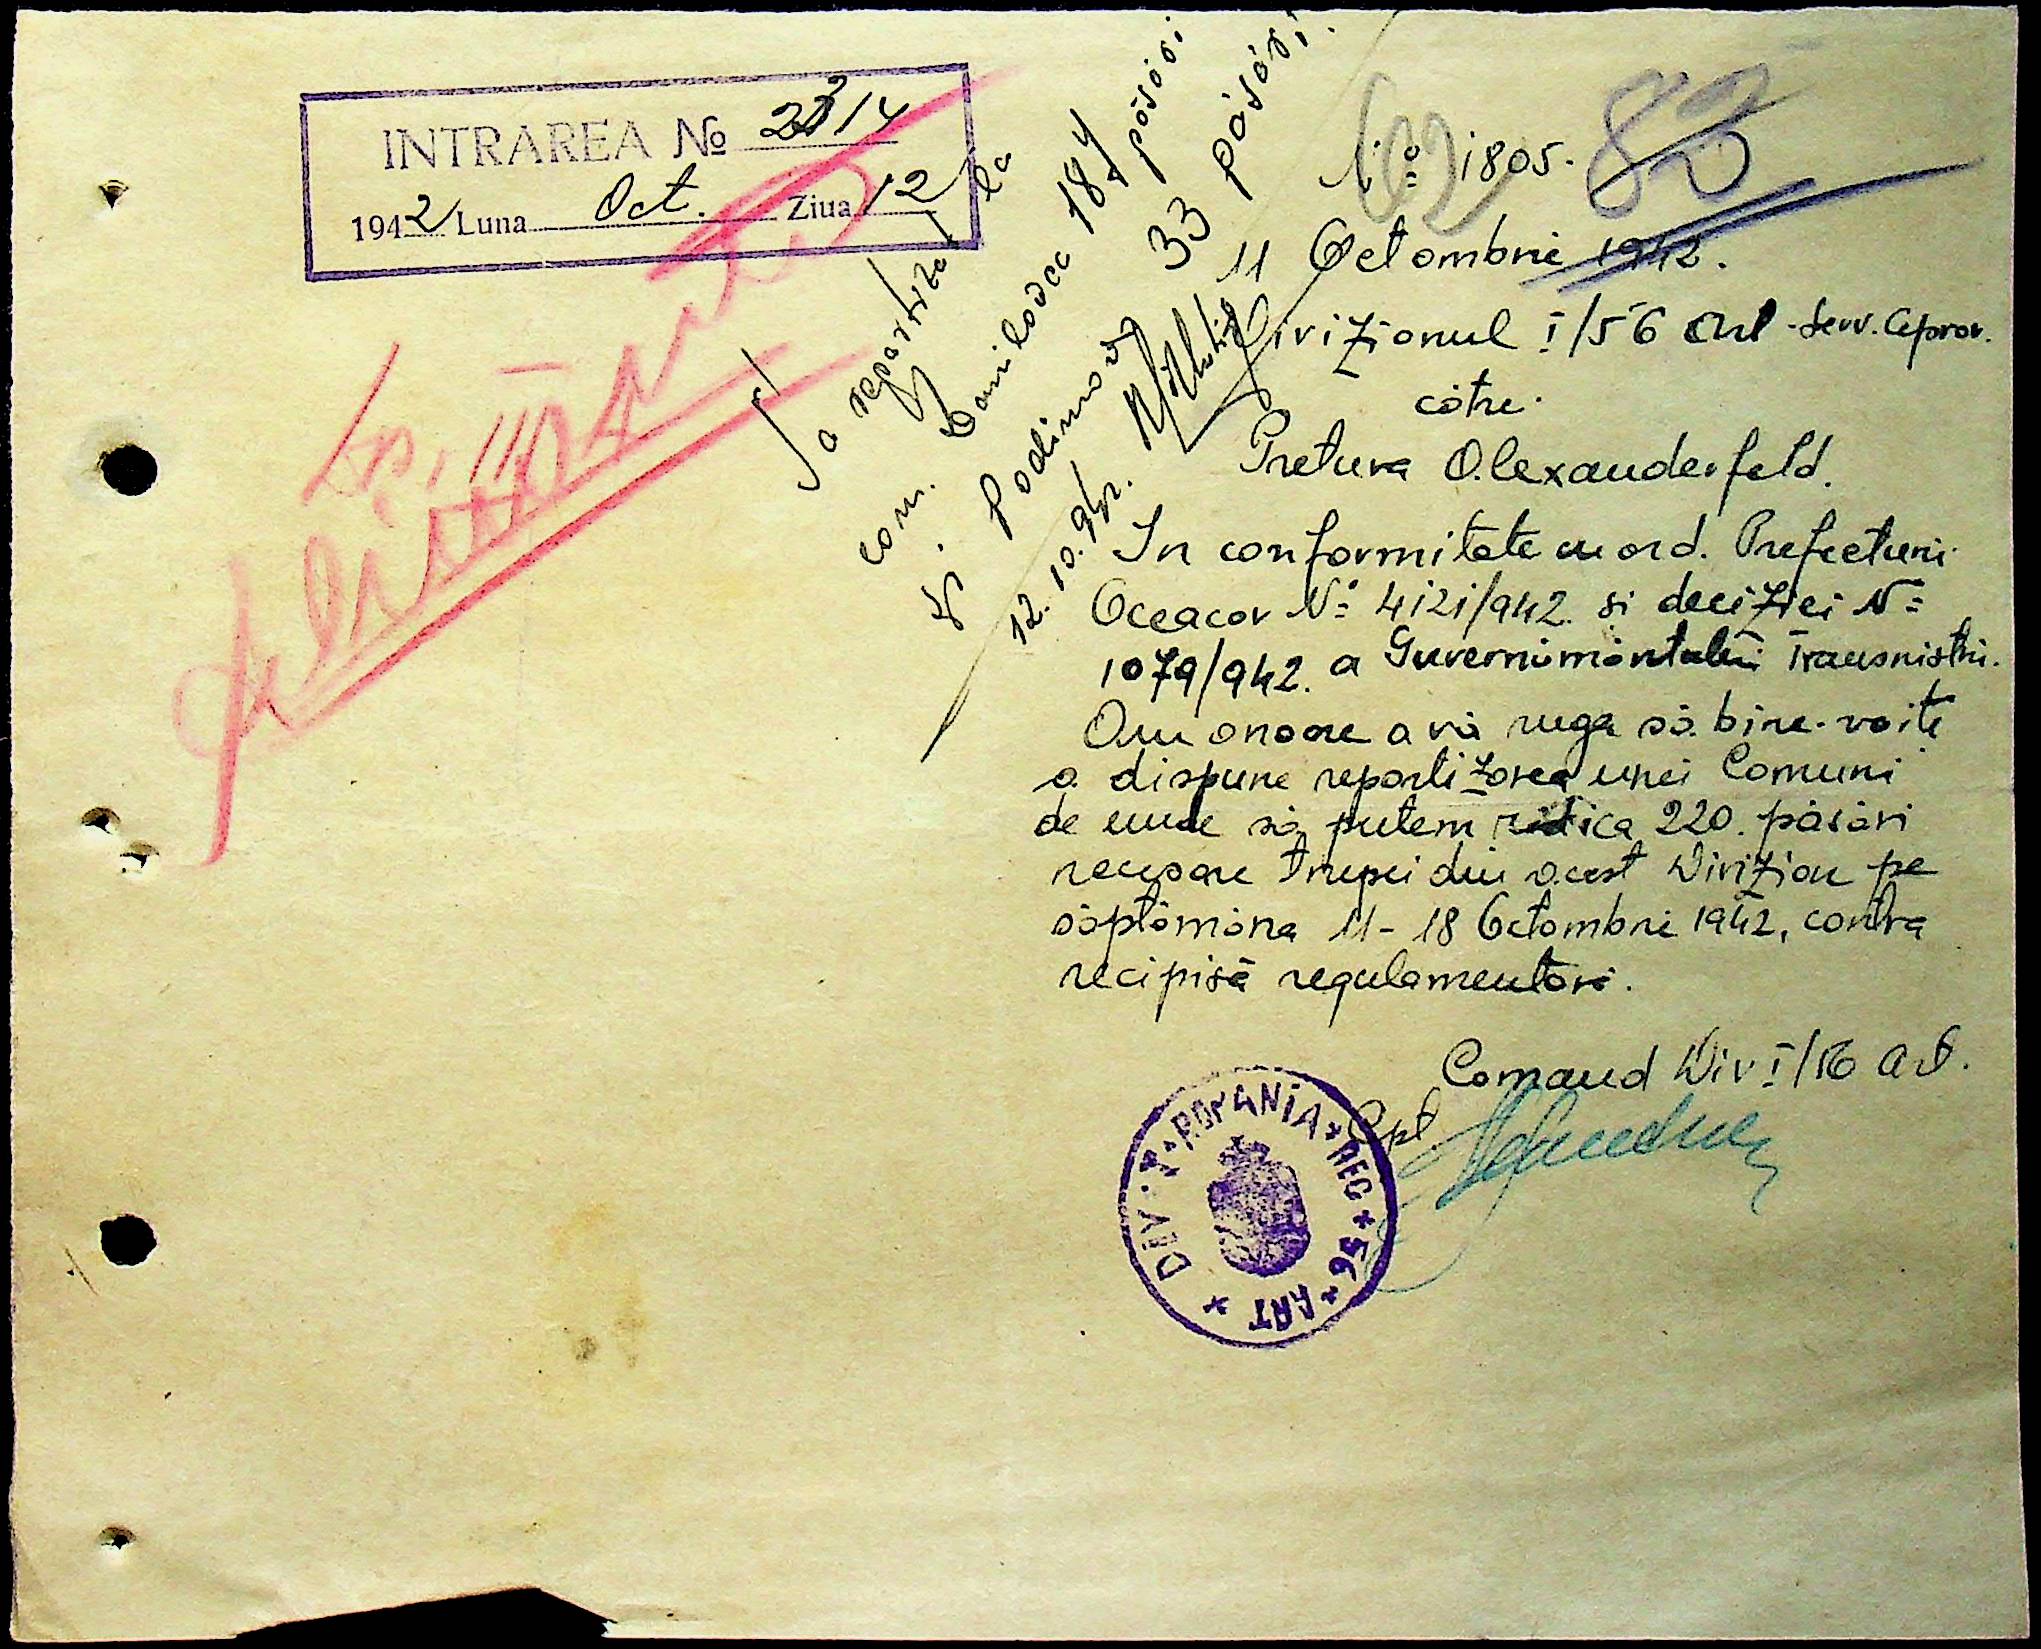 INTRAREA No 2314
1942 Luna Oct. Ziua 12
S'a repartizat la
com. Danilovca 187 păsări
și Podimov 33 păsări.
12.10.942.
No 1805.
83
11 Octombrie 1942.
Divizionul I/56 Art. Serv. Aprov.
către
Pretura Alexanderfeld.
In conformitate cu ord. Prefecturii
Oceacov No 4121/942. si deciziei No
1079/942. a Guvernămăntului Transnistri.
Am onoare a vă ruga să bine-voiti
a dispune repartizarea unei Comuni
de unde să putem ridica 220. păsări
necesare trupei din acest Divizion pe
săptămâna 11-18 Octombrie 1942, contra
recipisă regulamentară.
Comand Div I/56 Art.
Cpt
DIV. I * ROMANIA * REG * 56 * ART *